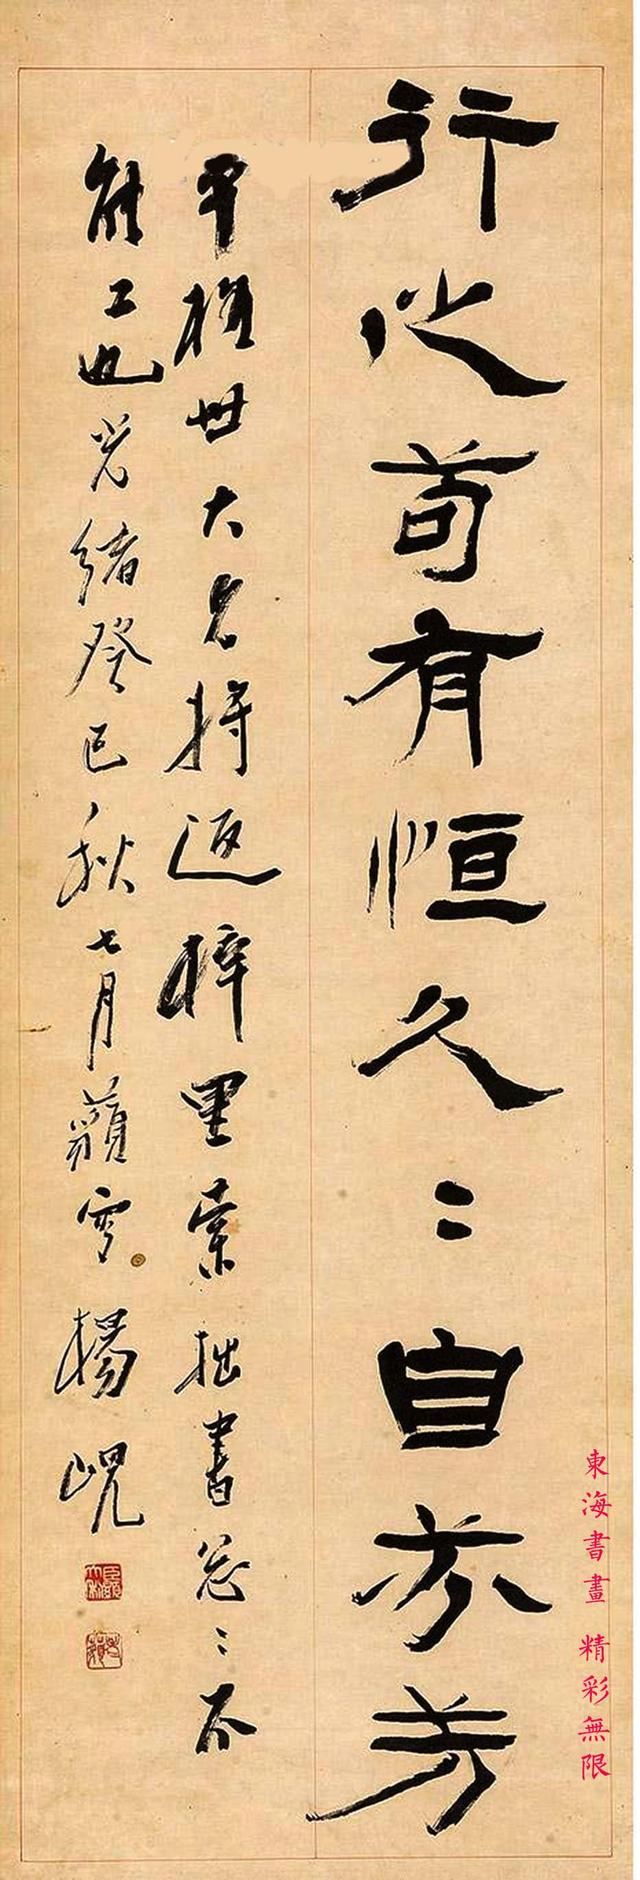 行之苟有恒久〻自芬芳
世大兄将返梓里索拙書怱〻不
能工也光緒癸巳秋七月藐翁楊峴
東海書畫 精彩無限